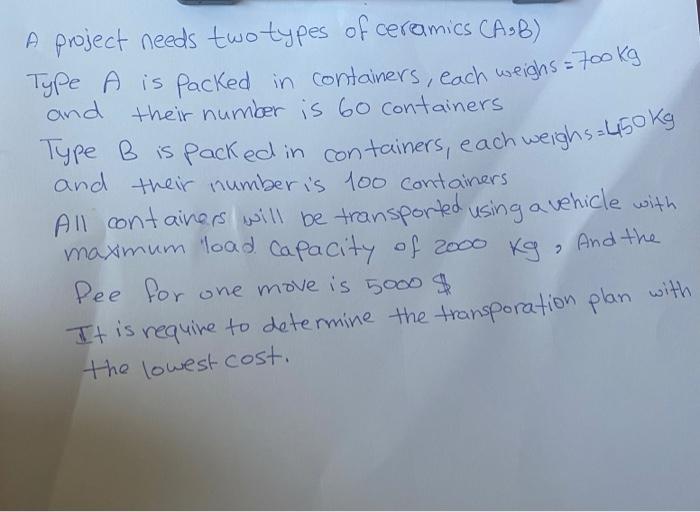 A project needs two types of ceramics (A,B)
Type A is packed in containers, each weighs = 700 Kg
and their number is 60 containers
Type B is packed in containers, each weighs = 450 Kg
and their number is 100 containers
All containers will be transported using a vehicle with
maximum load capacity of 2000 Kg, And the
Pee for one move is 5000 $
It is require to determine the transporation plan with
the lowest cost.